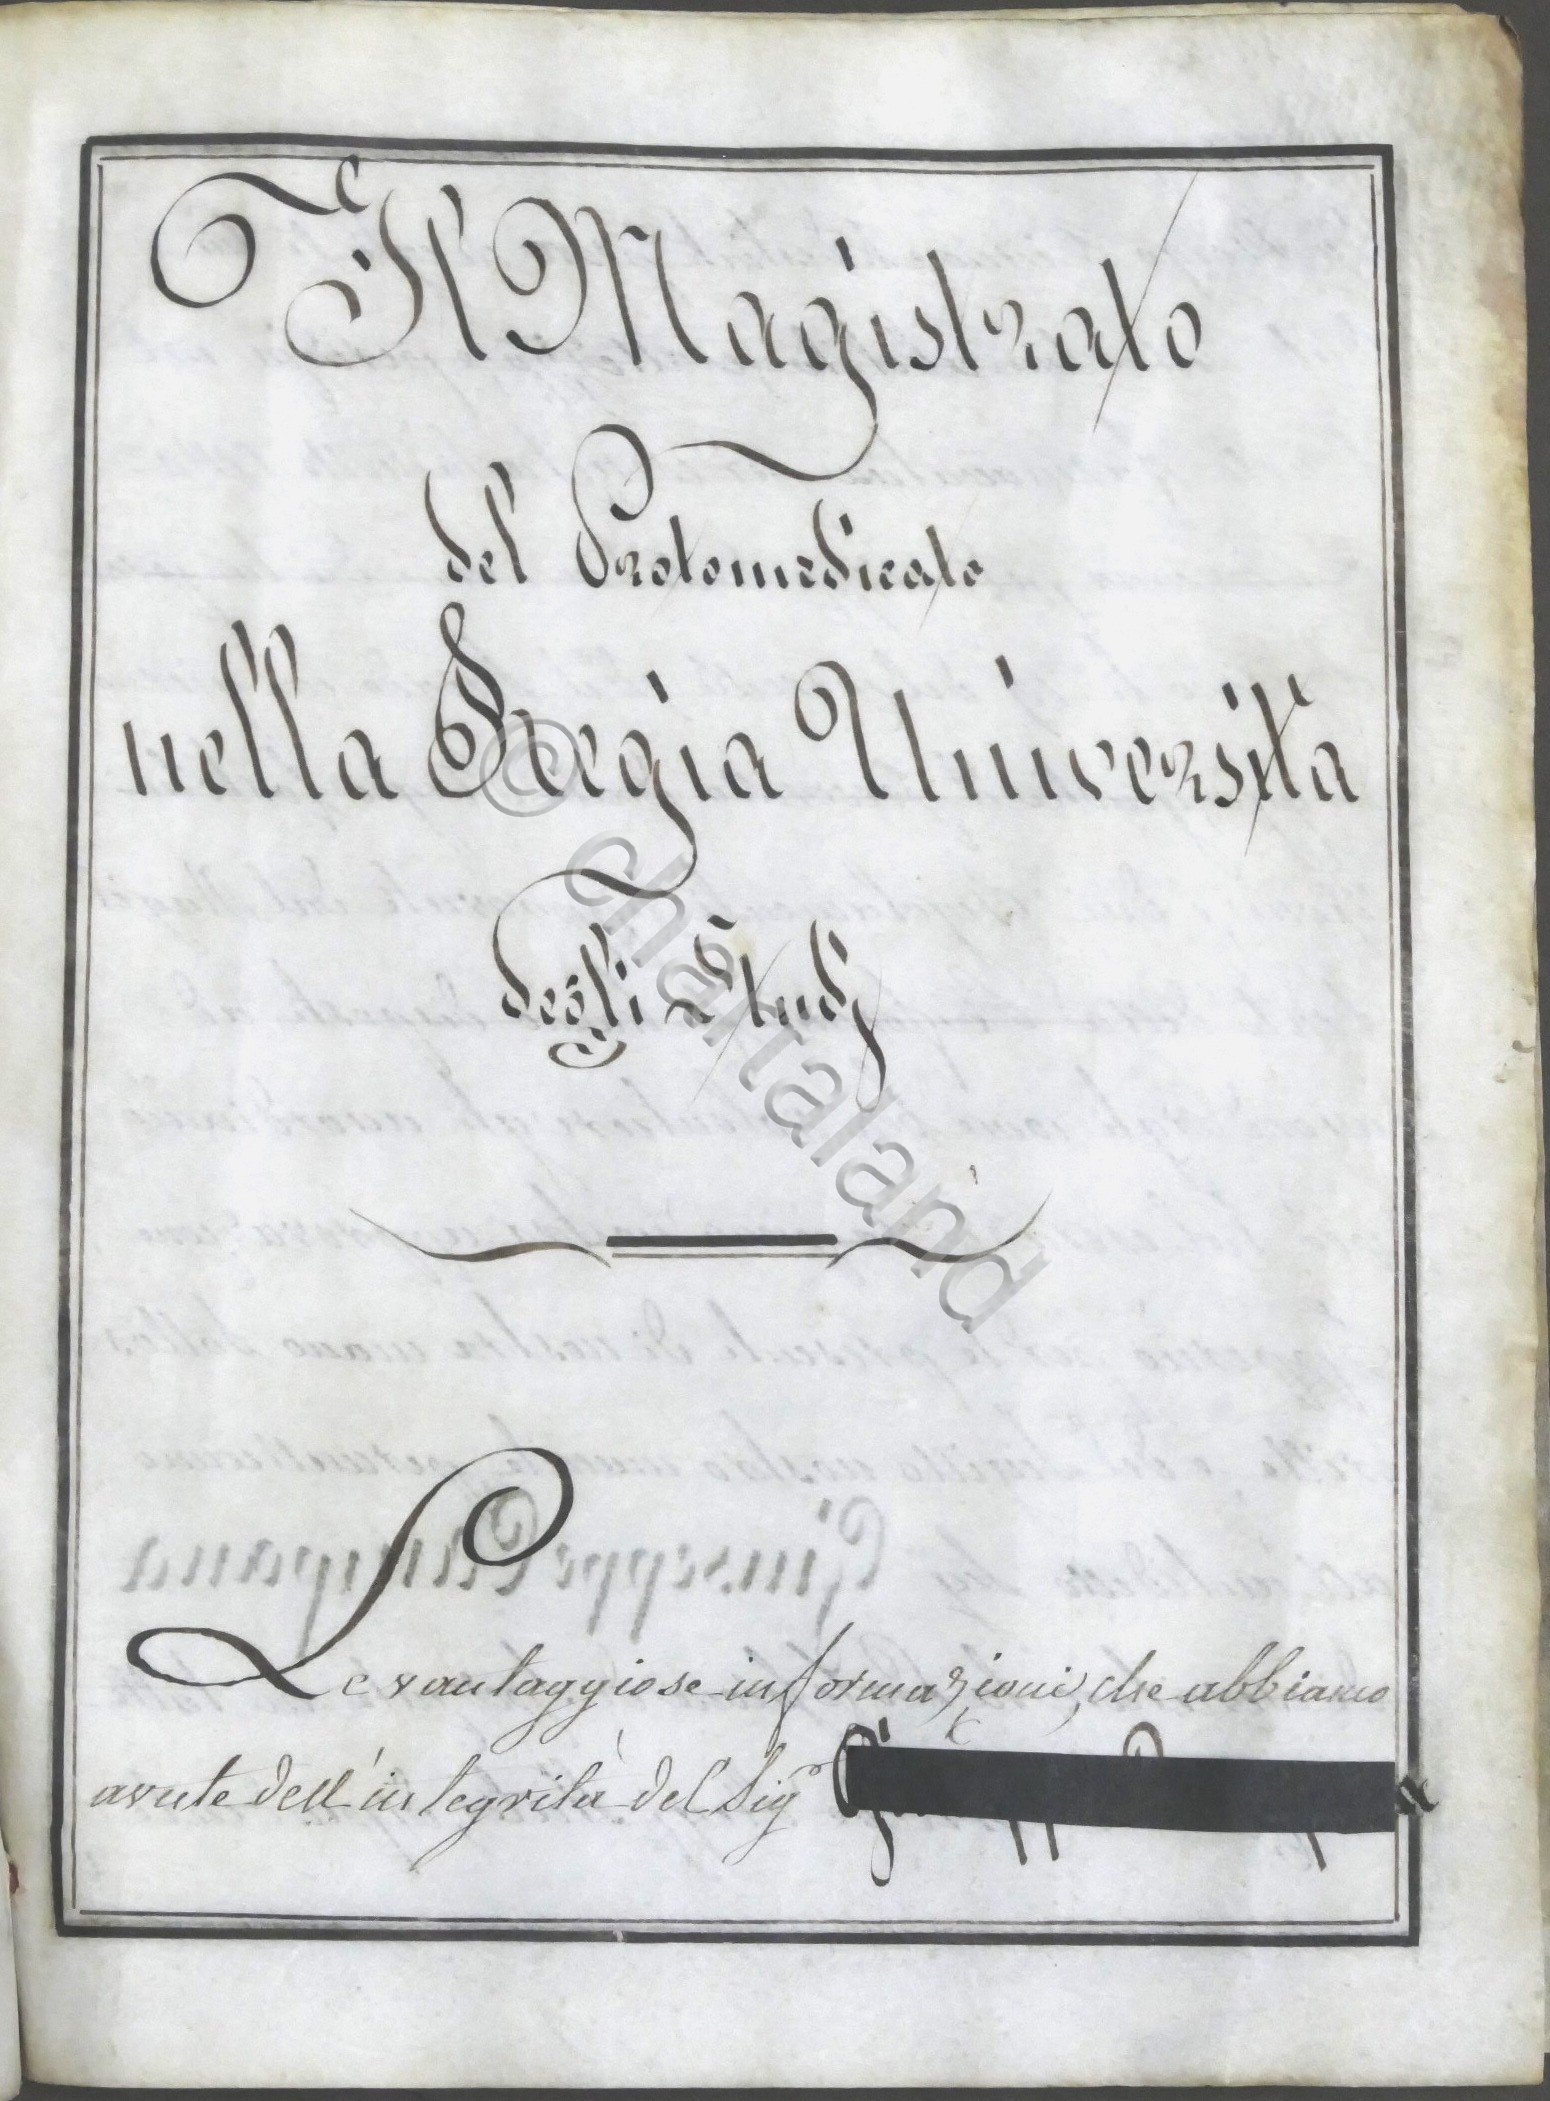 Il Magistrato
del Protomedicato
nella Regia Università
degli Studj
Le vantaggiose informazioni, che abbiamo
avute dell'integrità del Sig.r
© chartaland